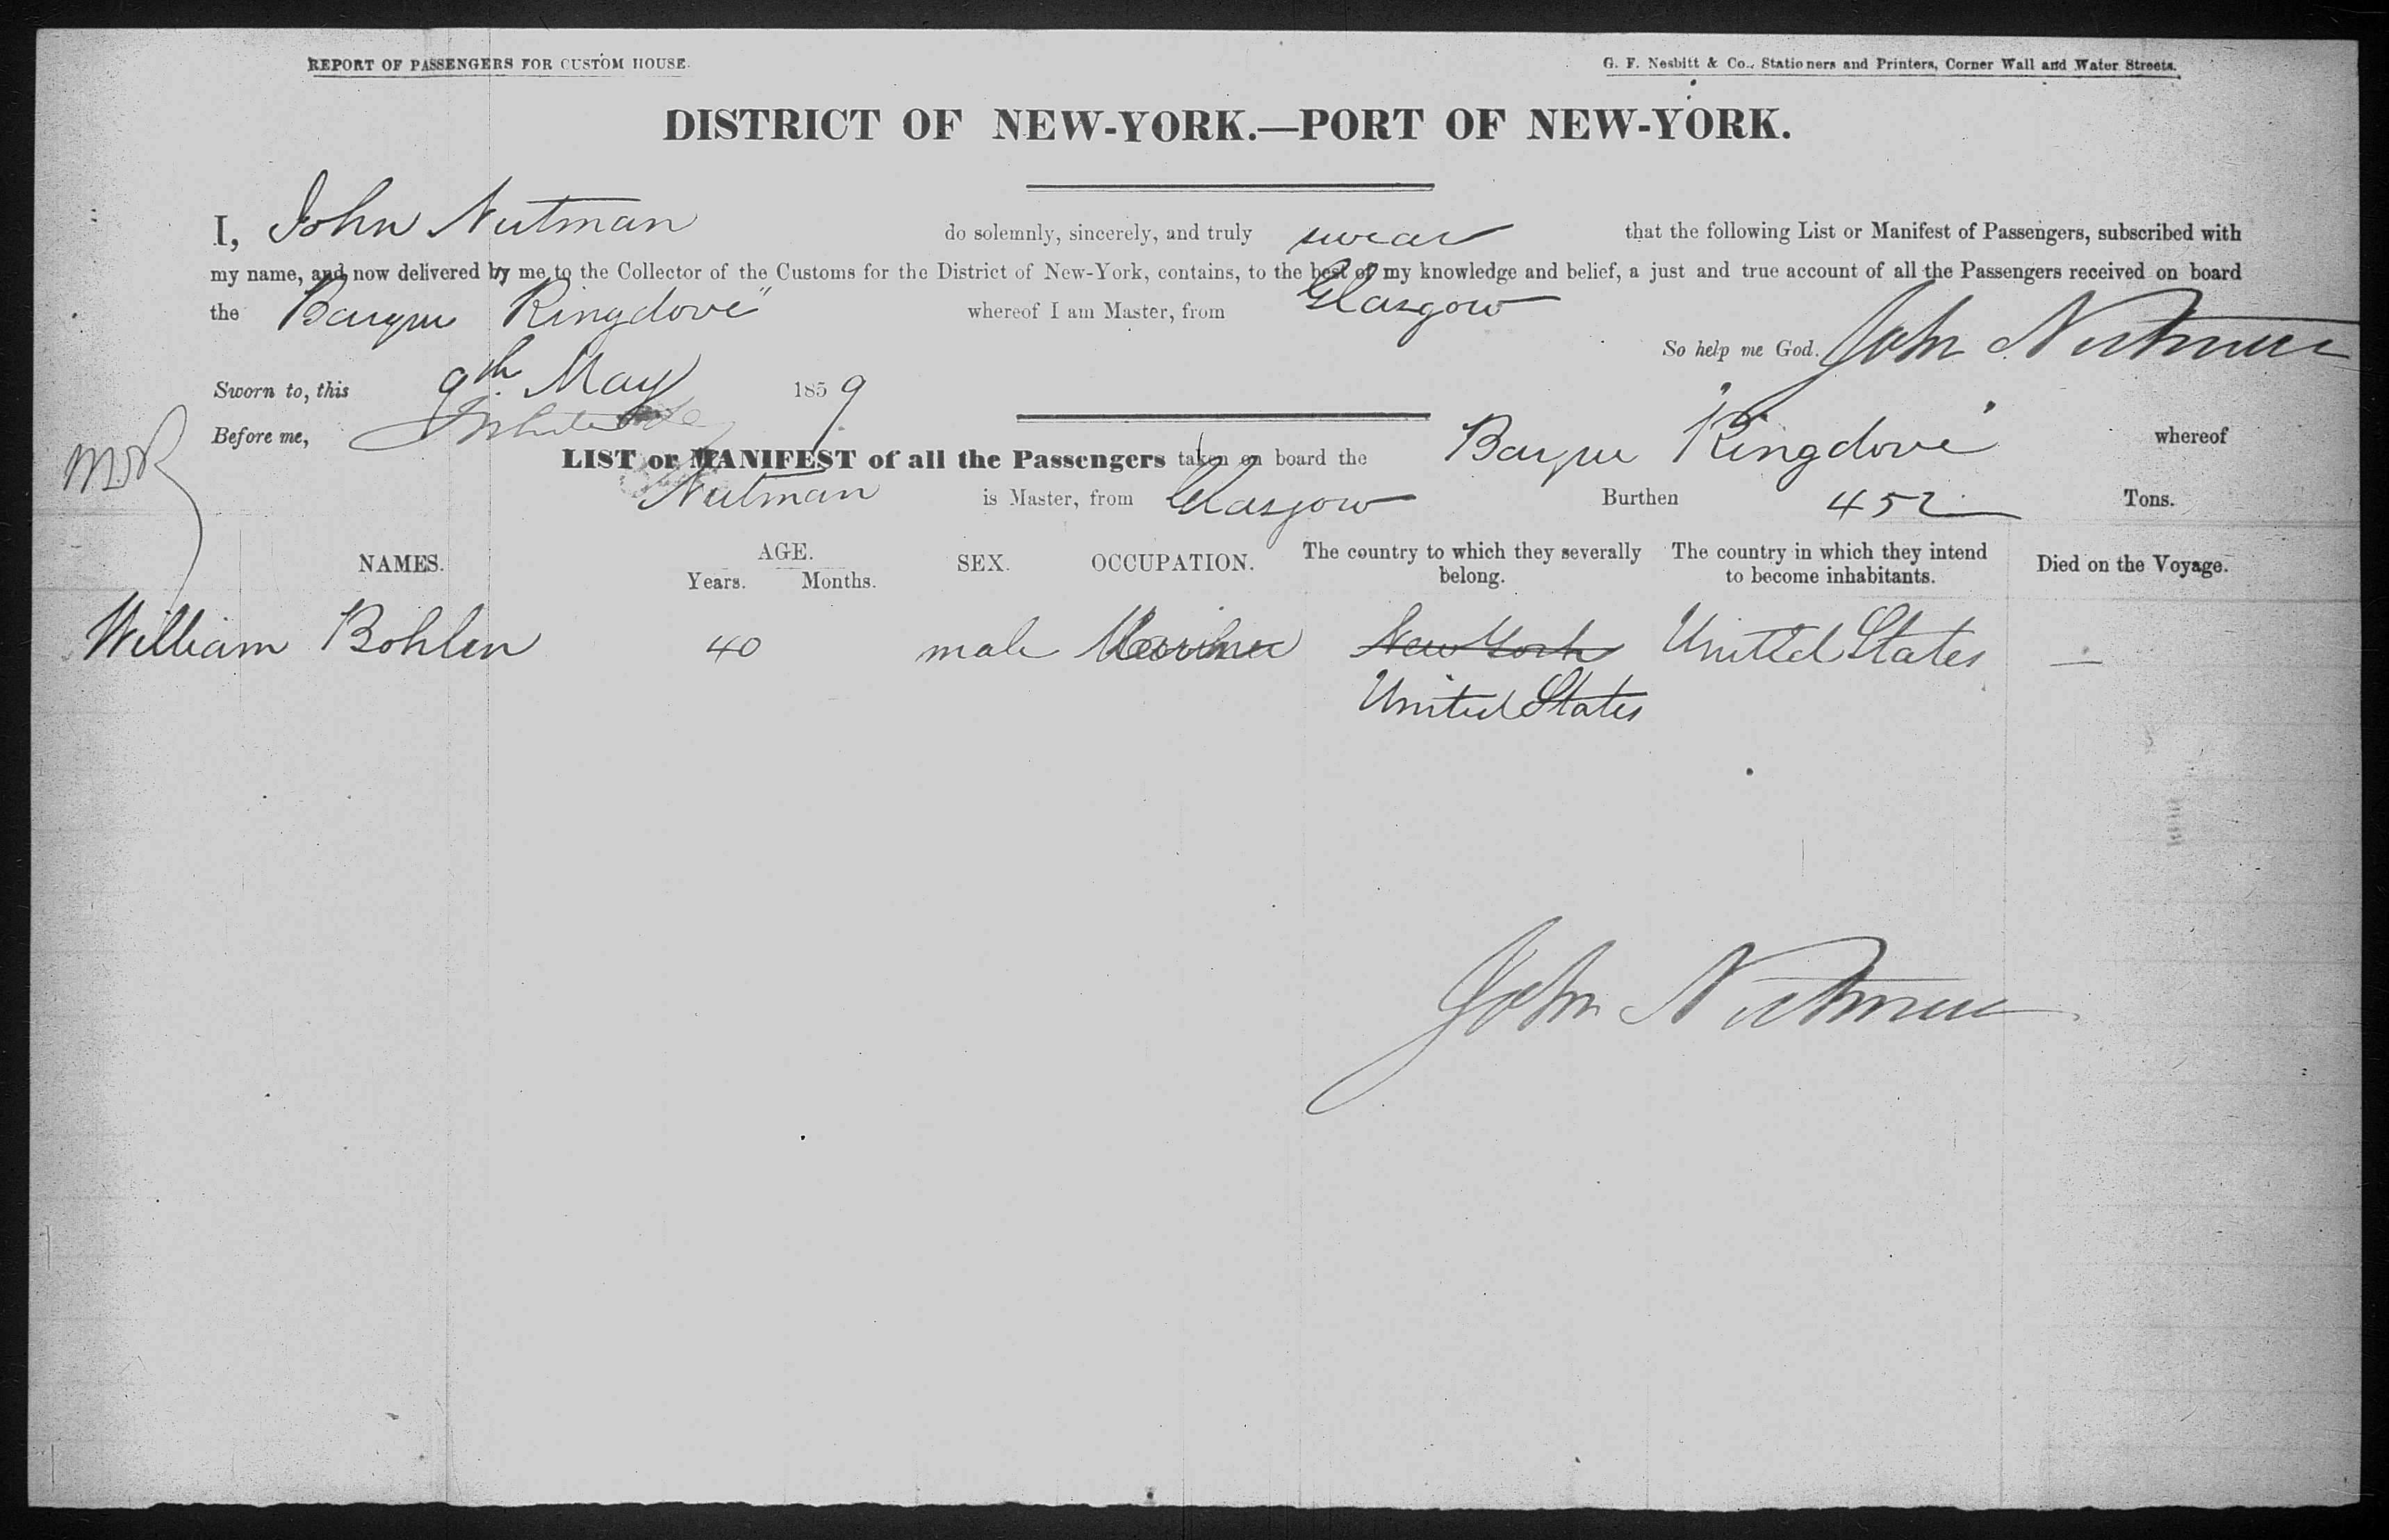 REPORT OF PASSENGERS FOR CUSTOM HOUSE.
G. F. Nesbitt & Co., Stationers and Printers, Corner Wall and Water Streets.
DISTRICT OF NEW-YORK.—PORT OF NEW-YORK.
I, John Nutman do solemnly, sincerely, and truly swear that the following List or Manifest of Passengers, subscribed with
my name, and now delivered by me to the Collector of the Customs for the District of New-York, contains, to the best of my knowledge and belief, a just and true account of all the Passengers received on board
the Barque Ringdove" whereof I am Master, from Glasgow
So help me God. John Nutman
Sworn to, this 9th May 1859
Before me,
LIST or MANIFEST of all the Passengers taken on board the Barque "Ringdove" whereof
Nutman is Master, from Glasgow Burthen 452 Tons.
NAMES. AGE. Years. Months. SEX. OCCUPATION. The country to which they severally belong. The country in which they intend to become inhabitants. Died on the Voyage.
William Bohlen 40 male Mariner New York United States —
United States
John Nutman